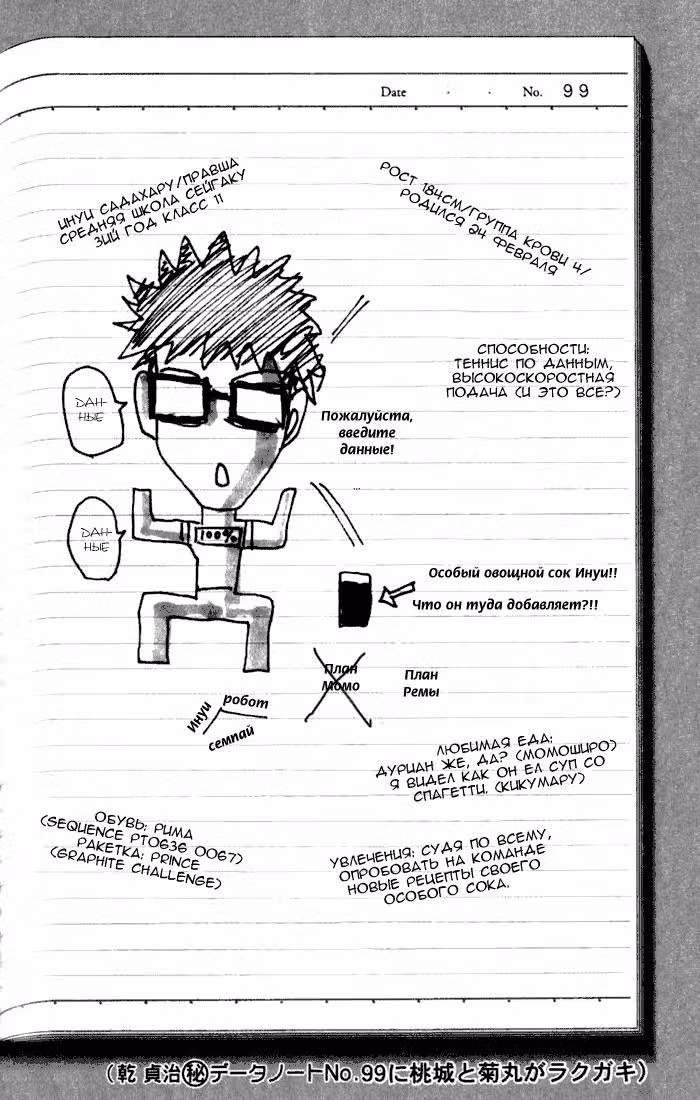 Date . . No. 99
ИНУИ САДАХАРУ/ПРАВША
СРЕДНЯЯ ШКОЛА СЕЙГАКУ
3ИЙ ГОД КЛАСС 11
РОСТ 184СМ/ГРУППА КРОВИ 4/
РОДИЛСЯ 24 ФЕВРАЛЯ
СПОСОБНОСТИ:
ТЕННИС ПО ДАННЫМ,
ВЫСОКОСКОРОСТНАЯ
ПОДАЧА (И ЭТО ВСЕ?)
ДАН-
НЫЕ
Пожалуйста,
введите
данные!
ДАН-
НЫЕ
100%
Особый овощной сок Инуи!!
Что он туда добавляет?!!
План
Момо
План
Ремы
Инуи
робот
семпай
ЛЮБИМАЯ ЕДА:
ДУРИАН ЖЕ, ДА? (МОМОШИРО)
Я ВИДЕЛ КАК ОН ЕЛ СУП СО
СПАГЕТТИ. (КИКУМАРУ)
ОБУВЬ: PUMA
(SEQUENCE PT0636 0067)
РАКЕТКА: PRINCE
(GRAPHITE CHALLENGE)
УВЛЕЧЕНИЯ: СУДЯ ПО ВСЕМУ,
ОПРОБОВАТЬ НА КОМАНДЕ
НОВЫЕ РЕЦЕПТЫ СВОЕГО
ОСОБОГО СОКА.
(乾 貞治㊙データノートNo.99に桃城と菊丸がラクガキ)